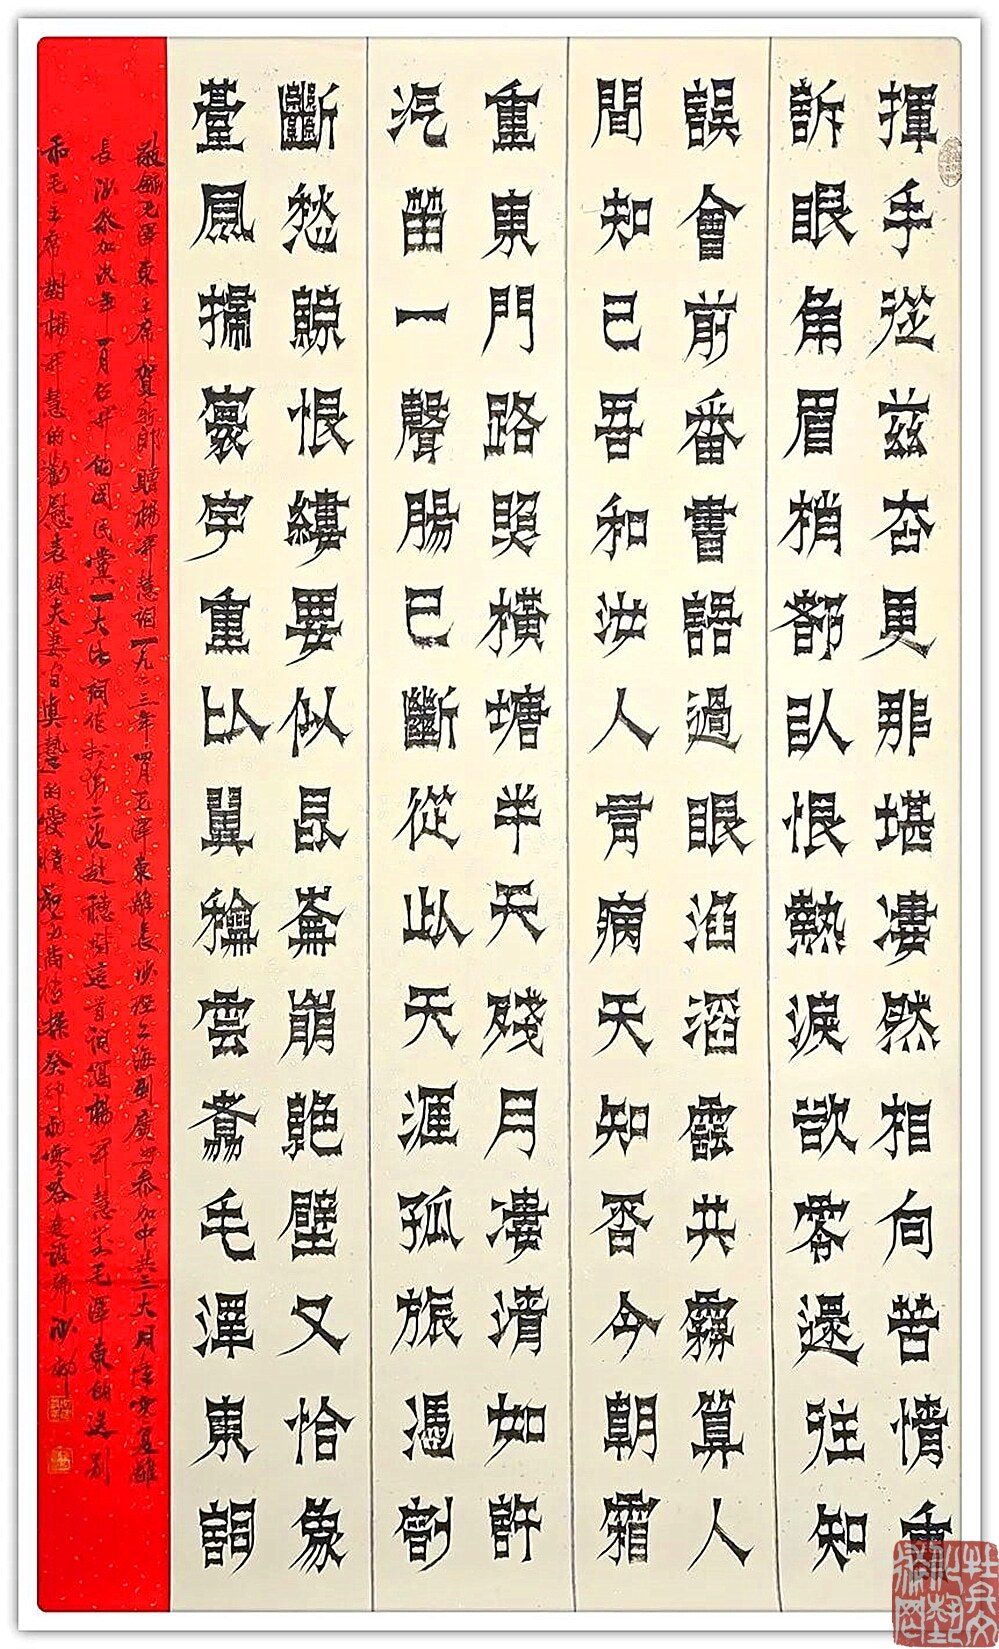 揮手從茲去更那堪凄然相向苦情重
訴眼角眉梢都似恨熱淚欲零還往知
誤會前番書語過眼滔滔雲共霧算人
間知己吾和汝人有病天知否今朝霜
重東門路照橫塘半天殘月凄清如許
汽笛一聲腸已斷從此天涯孤旅憑割
斷愁絲恨縷要似昆崙崩絕壁又恰象
臺風掃寰宇重比翼龢雲翥毛澤東詞
敬錄毛澤東主席賀新郎贈楊開慧詞一九二三年四月毛澤東離長沙經上海到廣州參加中共三大同年 離
長沙參加次年一月召開的國民黨一大 詞作於第二次赴穗時這首詞寫楊開慧 毛澤東的送別
和毛主席對楊開慧的勸慰表現夫妻間真摯的愛情和高尚情操癸卯